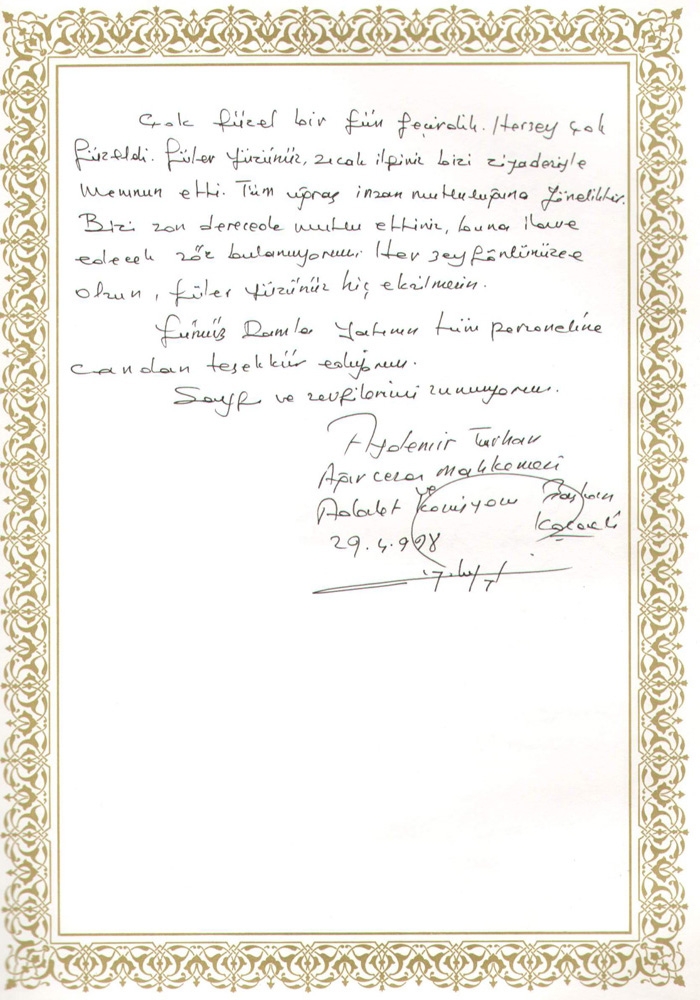 Çok güzel bir gün geçirdik. Herşey çok
güzeldi. Güler yüzünüz, sıcak ilginiz bizi ziyadesiyle
memnun etti. Tüm uğraş insan mutluluğuna yöneliktir.
Bizi son derecede mutlu ettiniz, buna ilave
edecek söz bulamıyorum. Her şey gönlünüzce
olsun, güler yüzünüz hiç eksilmesin.
Damla yatının tüm personeline
candan teşekkür ediyorum.
Saygı ve sevgilerimi sunuyorum.
Aydemir Turhan
Ağır ceza mahkemesi
ve
Adalet Komisyonu Başkanı
29.4.998